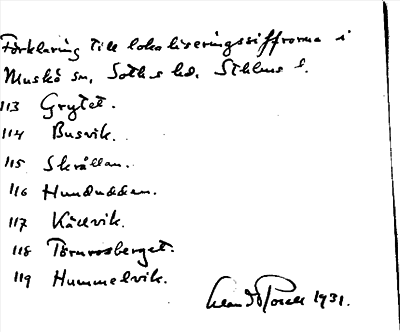 Förklaring till lokaliseringssiffrorna i
Muskö sn, Sotholms hd, Sthlms l.
113 Grytet.
114 Busvik.
115 Skrållan.
116 Hundudden.
117 Källvik.
118 Törnrosberget.
119 Hummelvik.
1931.